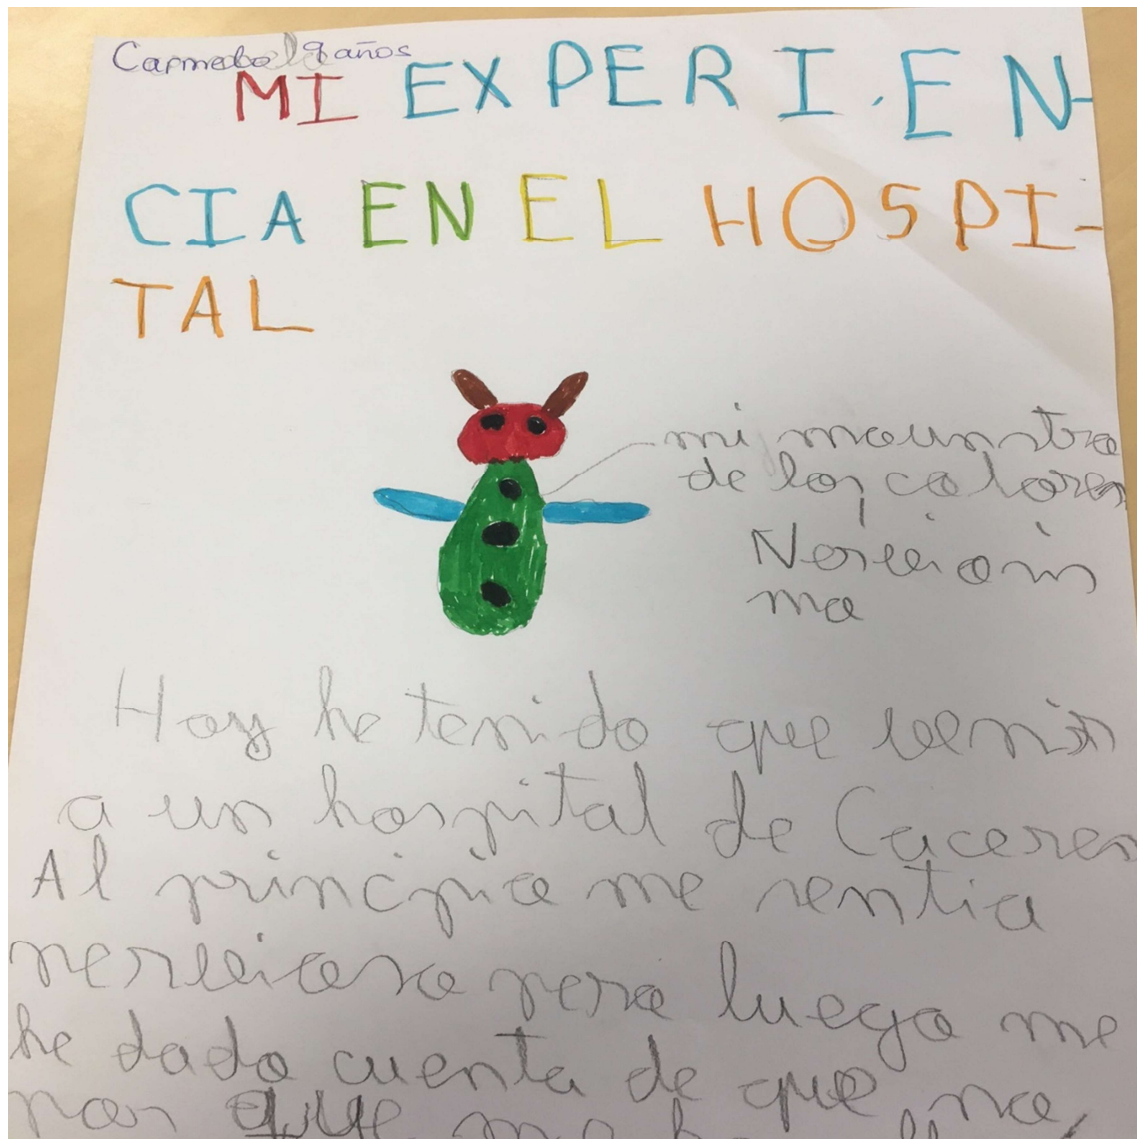 9 años
MI EXPERIEN-
CIA EN EL HOSPI-
TAL
mi mounstro
de los colores
Nerviosis
mo
Hoy he tenido que venir
a un hospital de Caceres
Al principio me sentia
nerviosa pero luego me
he dado cuenta de que no,
por que